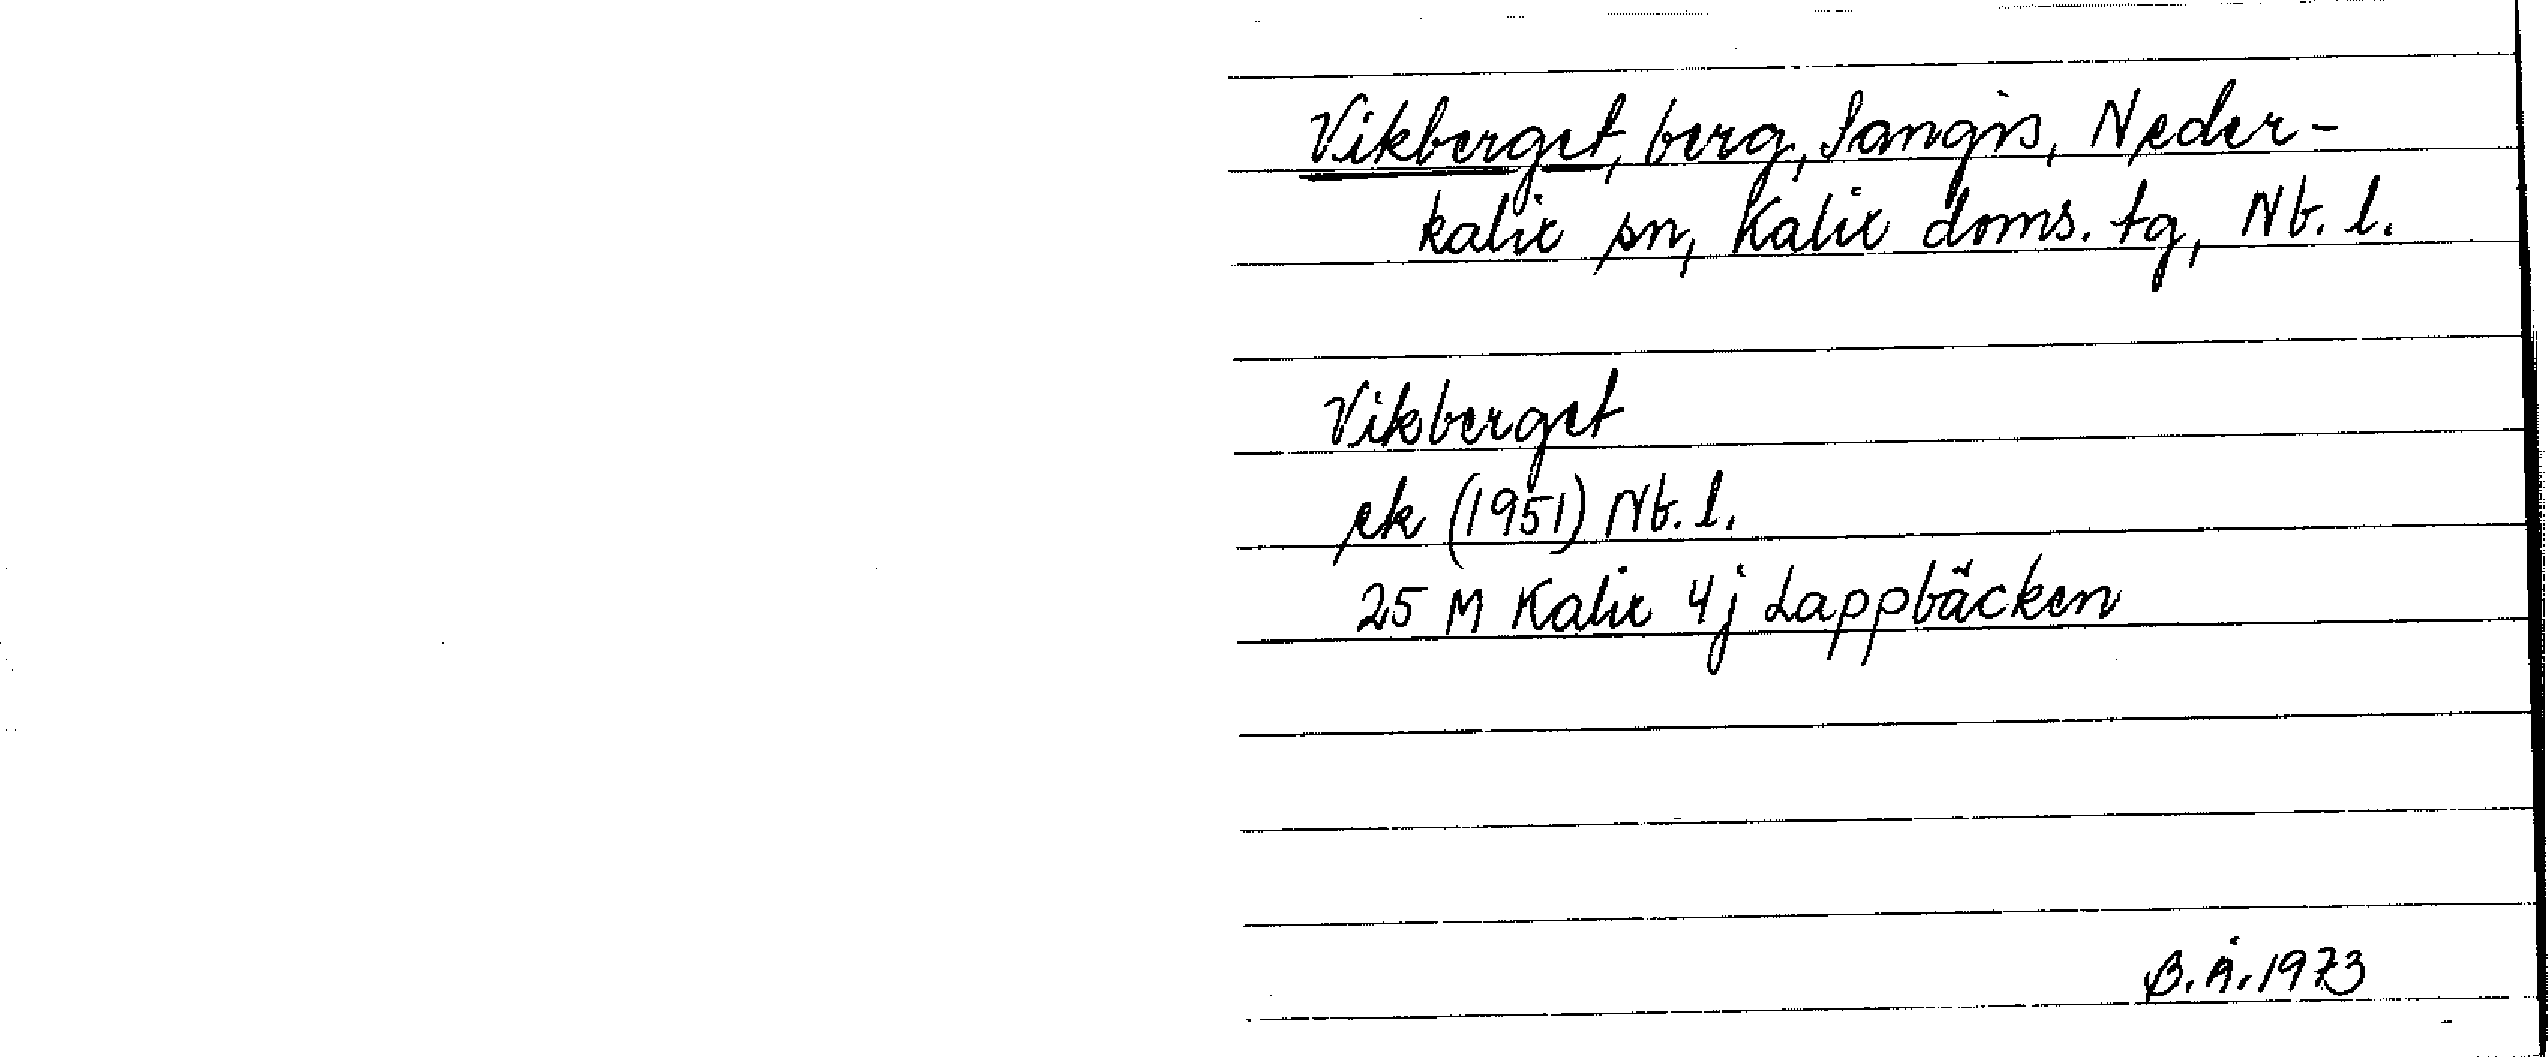 Vikberget, berg, Sangis, Neder-
kalix sn, Kalix doms. tg, Nb. l.
Vikberget
ek (1951) Nb. l.
25 M Kalix 4j Lappbäcken
B.Å. 1973